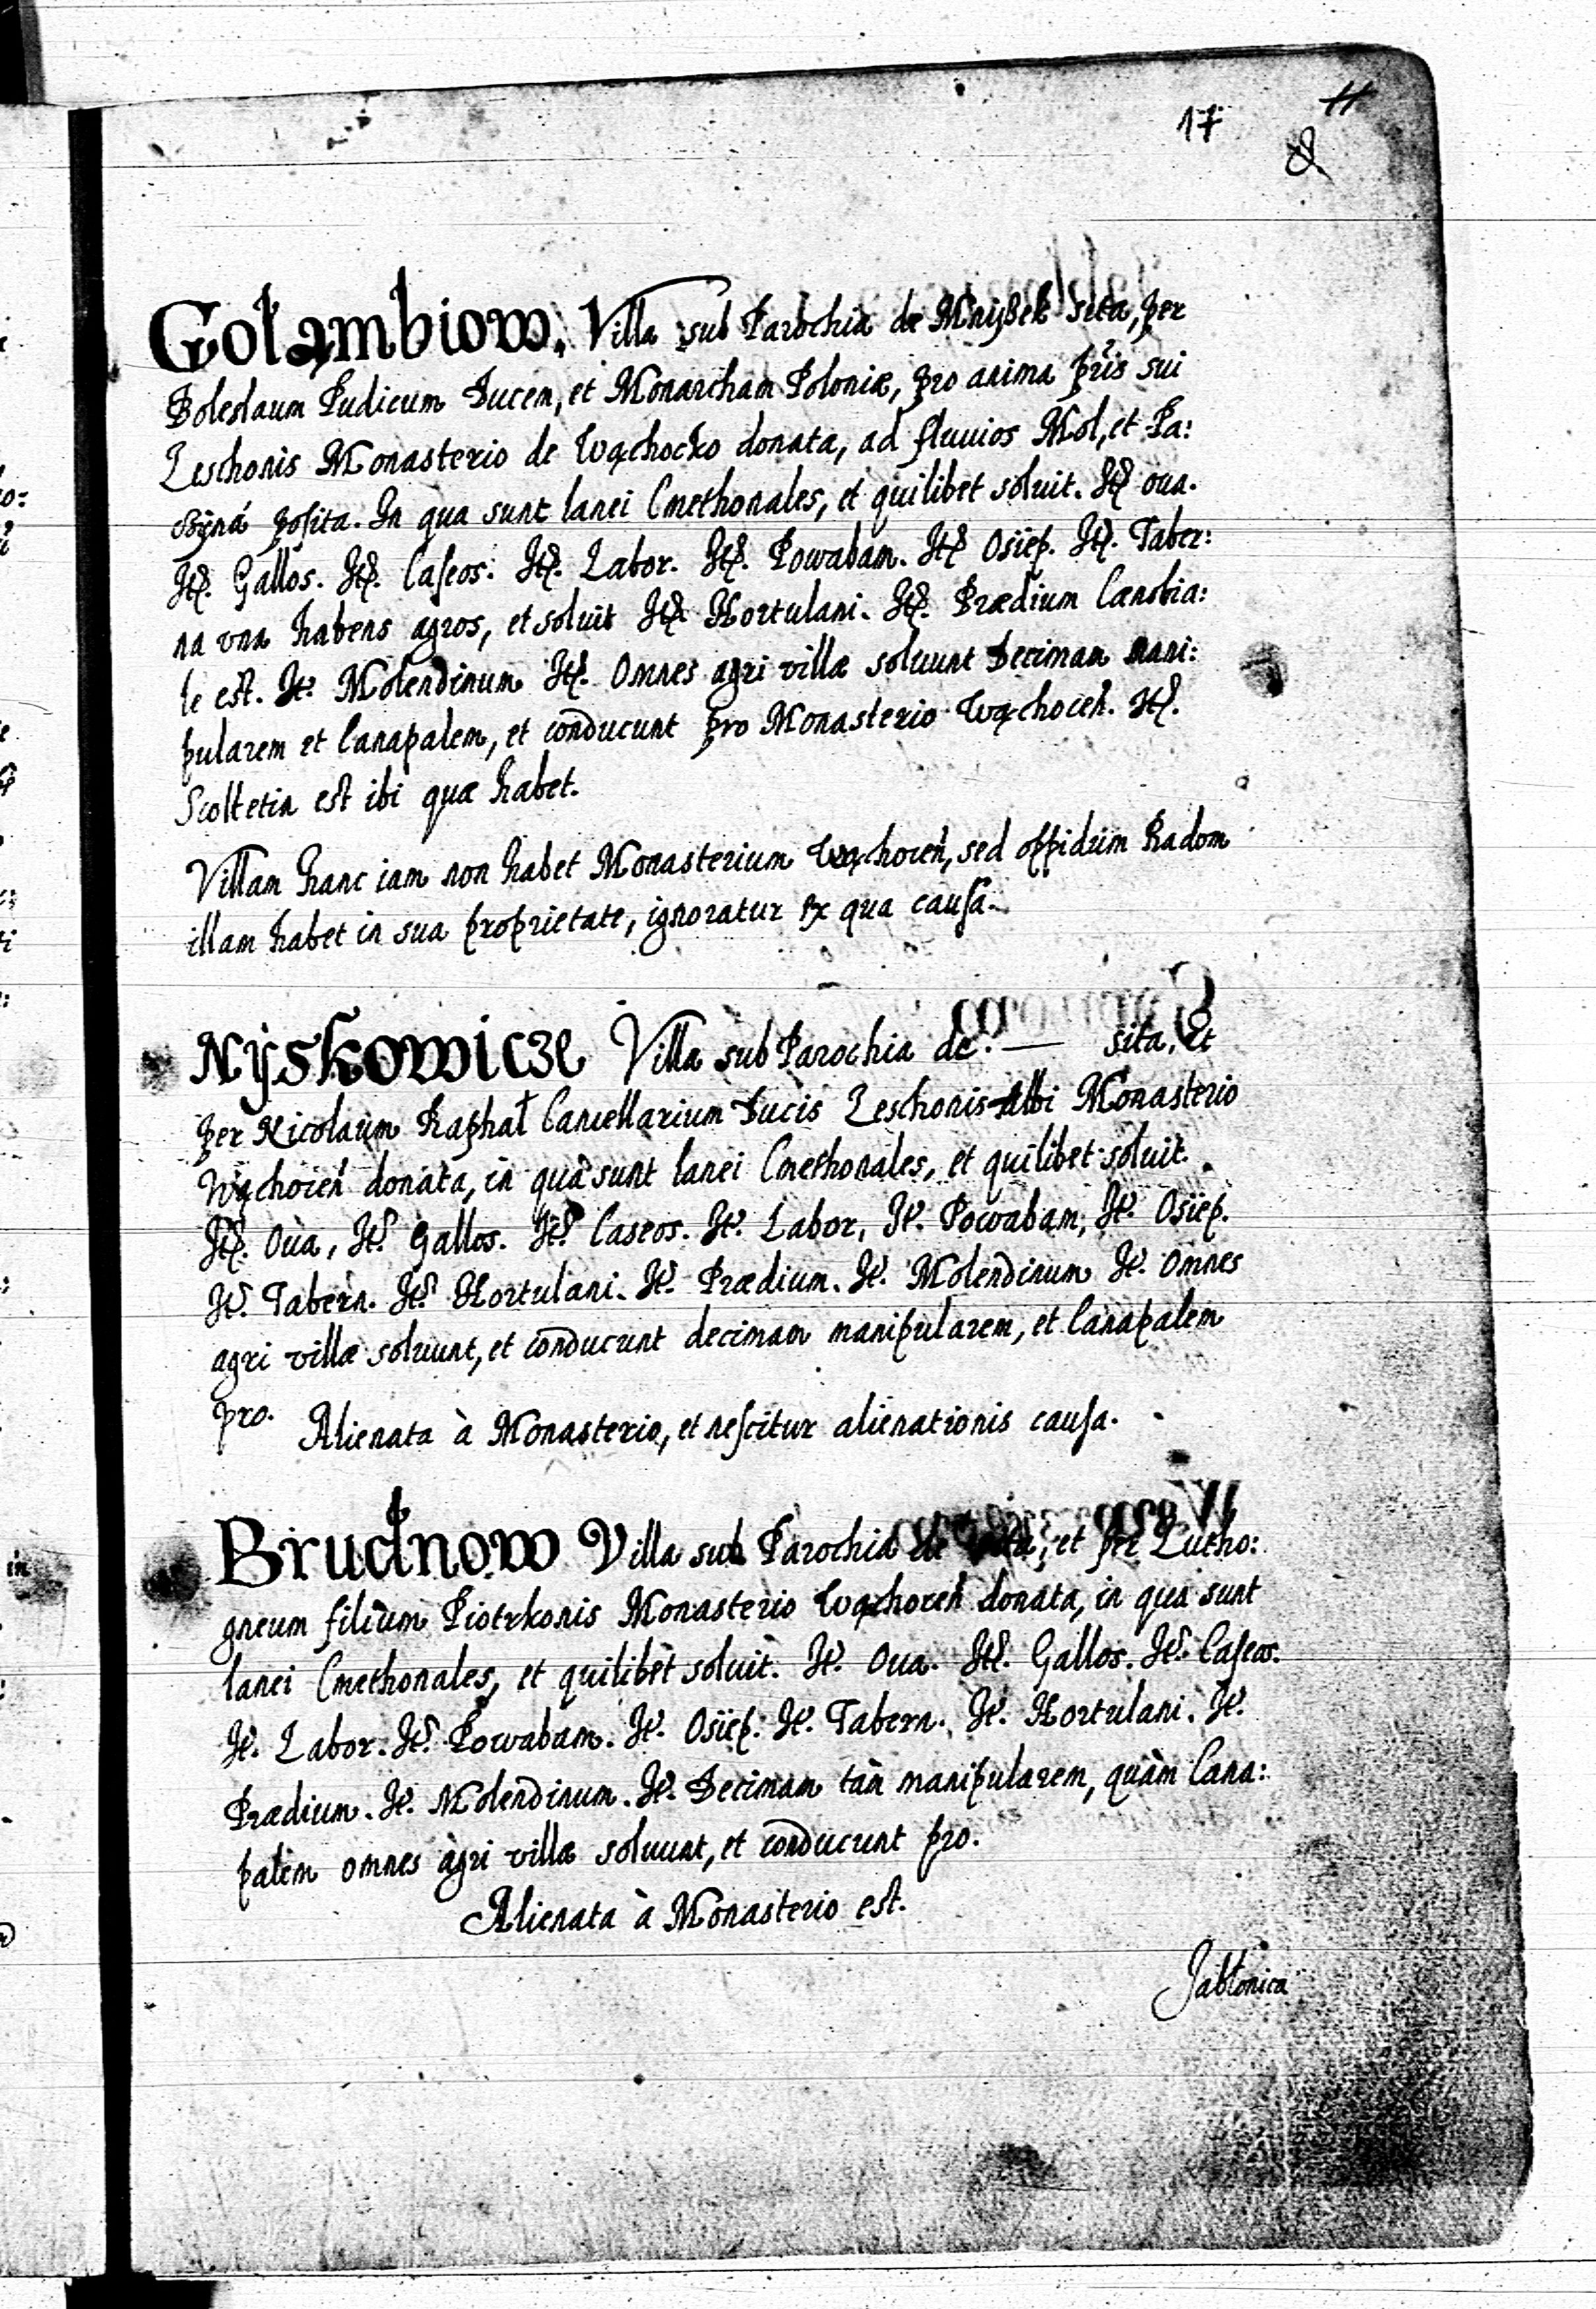 17
Gołambiow. Villa sub Parochia de Mnyßek sita, per
Boleslaum Pudicum Ducem, et Monarcham Poloniæ, pro anima pr̃is sui
Leschonis Monasterio de Wąchocko donata, ad fluuios Mol, et Pa:
posita. In qua sunt lanei Cmethonales, et quilibet soluit. Itẽ oua.
Itẽ. Gallos. Itẽ. Caseos. Itẽ. Labor. Itẽ. Powabam. Itẽ Osiep. Itẽ. Taber:
na vna habens agros, et soluit Itẽ Hortulani. Itẽ. Prædium Cœnobia:
le est. It. Molendinum Itẽ. Omnes agri villæ soluunt Decimam mani:
pularem et Canapalem, et conducunt pro Monasterio Wąchoceñ. Itẽ.
Scoltetia est ibi quæ habet.
Villam hanc iam non habet Monasterium Wąchoceñ, sed oppidum Radom
illam habet in sua proprietate, ignoratur ex qua causa.
Nÿskowicze Villa sub Parochia de. — sita, Et
per Nicolaum Raphał Cancellarium Ducis Leschonis Albi Monasterio
Wąchoceñ donata, in qua sunt lanei Cmethonales, et quilibet soluit.
Itẽ. Oua, Itẽ. Gallos. Itẽ. Caseos. It. Labor, It. Powabam, It. Osiep.
It. Tabern. It. Hortulani. It. Prædium. It. Molendinum It. Omnes
agri villæ soluunt, et conducunt decimam manipularem, et Canapalem
pro. Alienata à Monasterio, et nescitur alienationis causa.
Brudnow Villa sub Parochia de sita, et per Lutho:
gneum filium Piotrkonis Monasterio Wąchoceñ donata, in qua sunt
lanei Cmethonales, et quilibet soluit. It. Oua. Itẽ. Gallos. It. Caseos.
It. Labor. It. Powabam. It. Osiep. It. Tabern. It. Hortulani. It.
Prædium. It. Molendinum. It. Decimam tàm manipularem, quàm Cana:
palem omnes agri villæ soluunt, et conducunt pro.
Alienata à Monasterio est.
Jabłonica